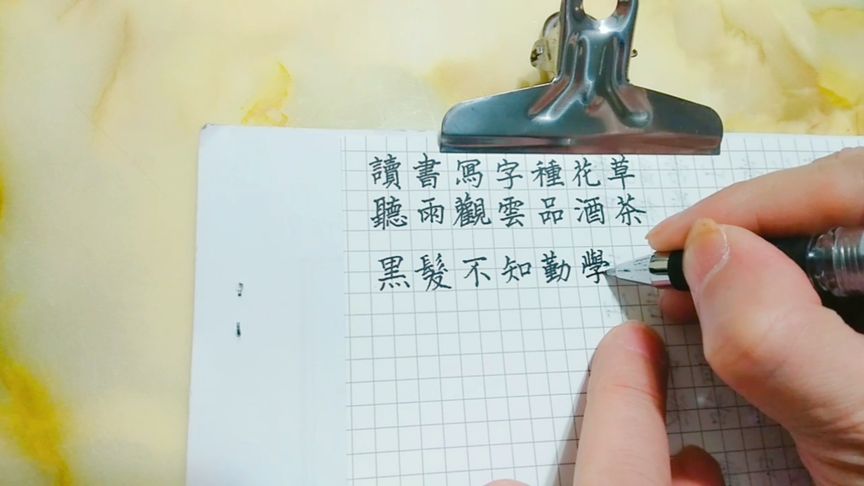 讀書寫字種花草
聽雨觀雲品酒茶
黑髮不知勤學